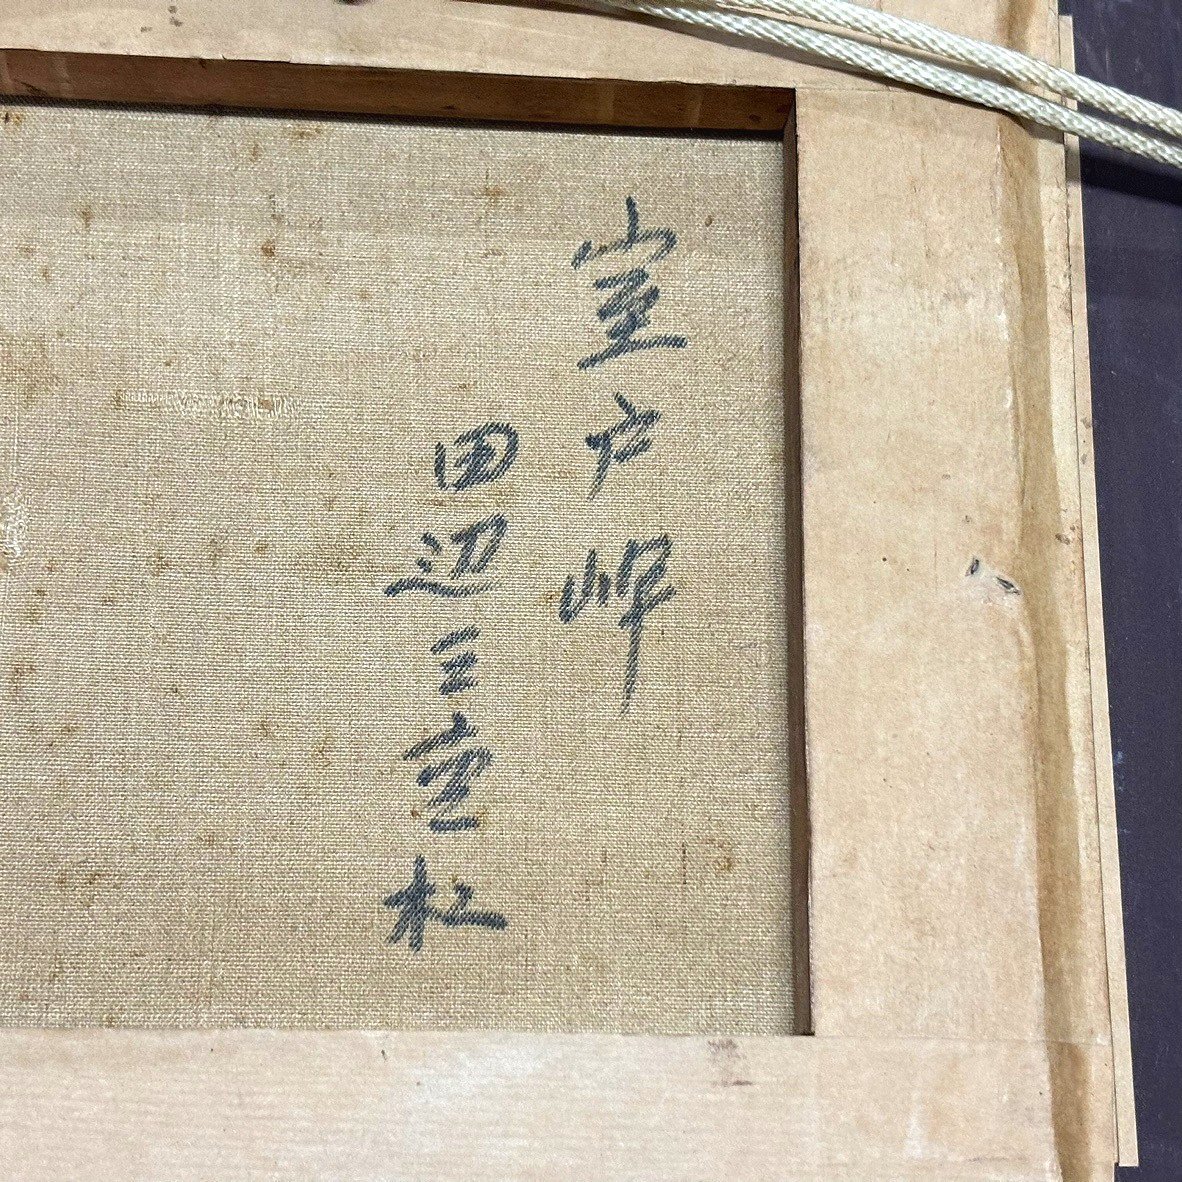 室戸岬
田辺三重松